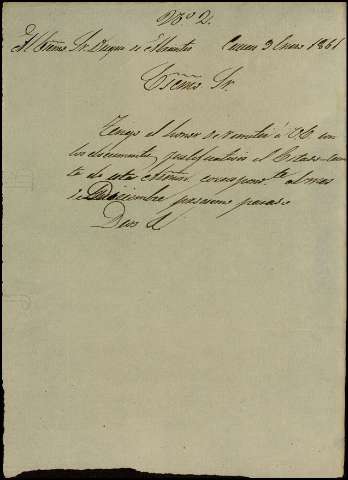 Nº 2.
Al Exmo. Sr. Duque de Abrantes Cuevas 3 Enero 1861
Exmo. Sr.
Tengo el honor de remitir á VE. en
los documentos justificativos el Estado
de esta admon. correspond.te al mes
de Diciembre proximo pasado
Dios &